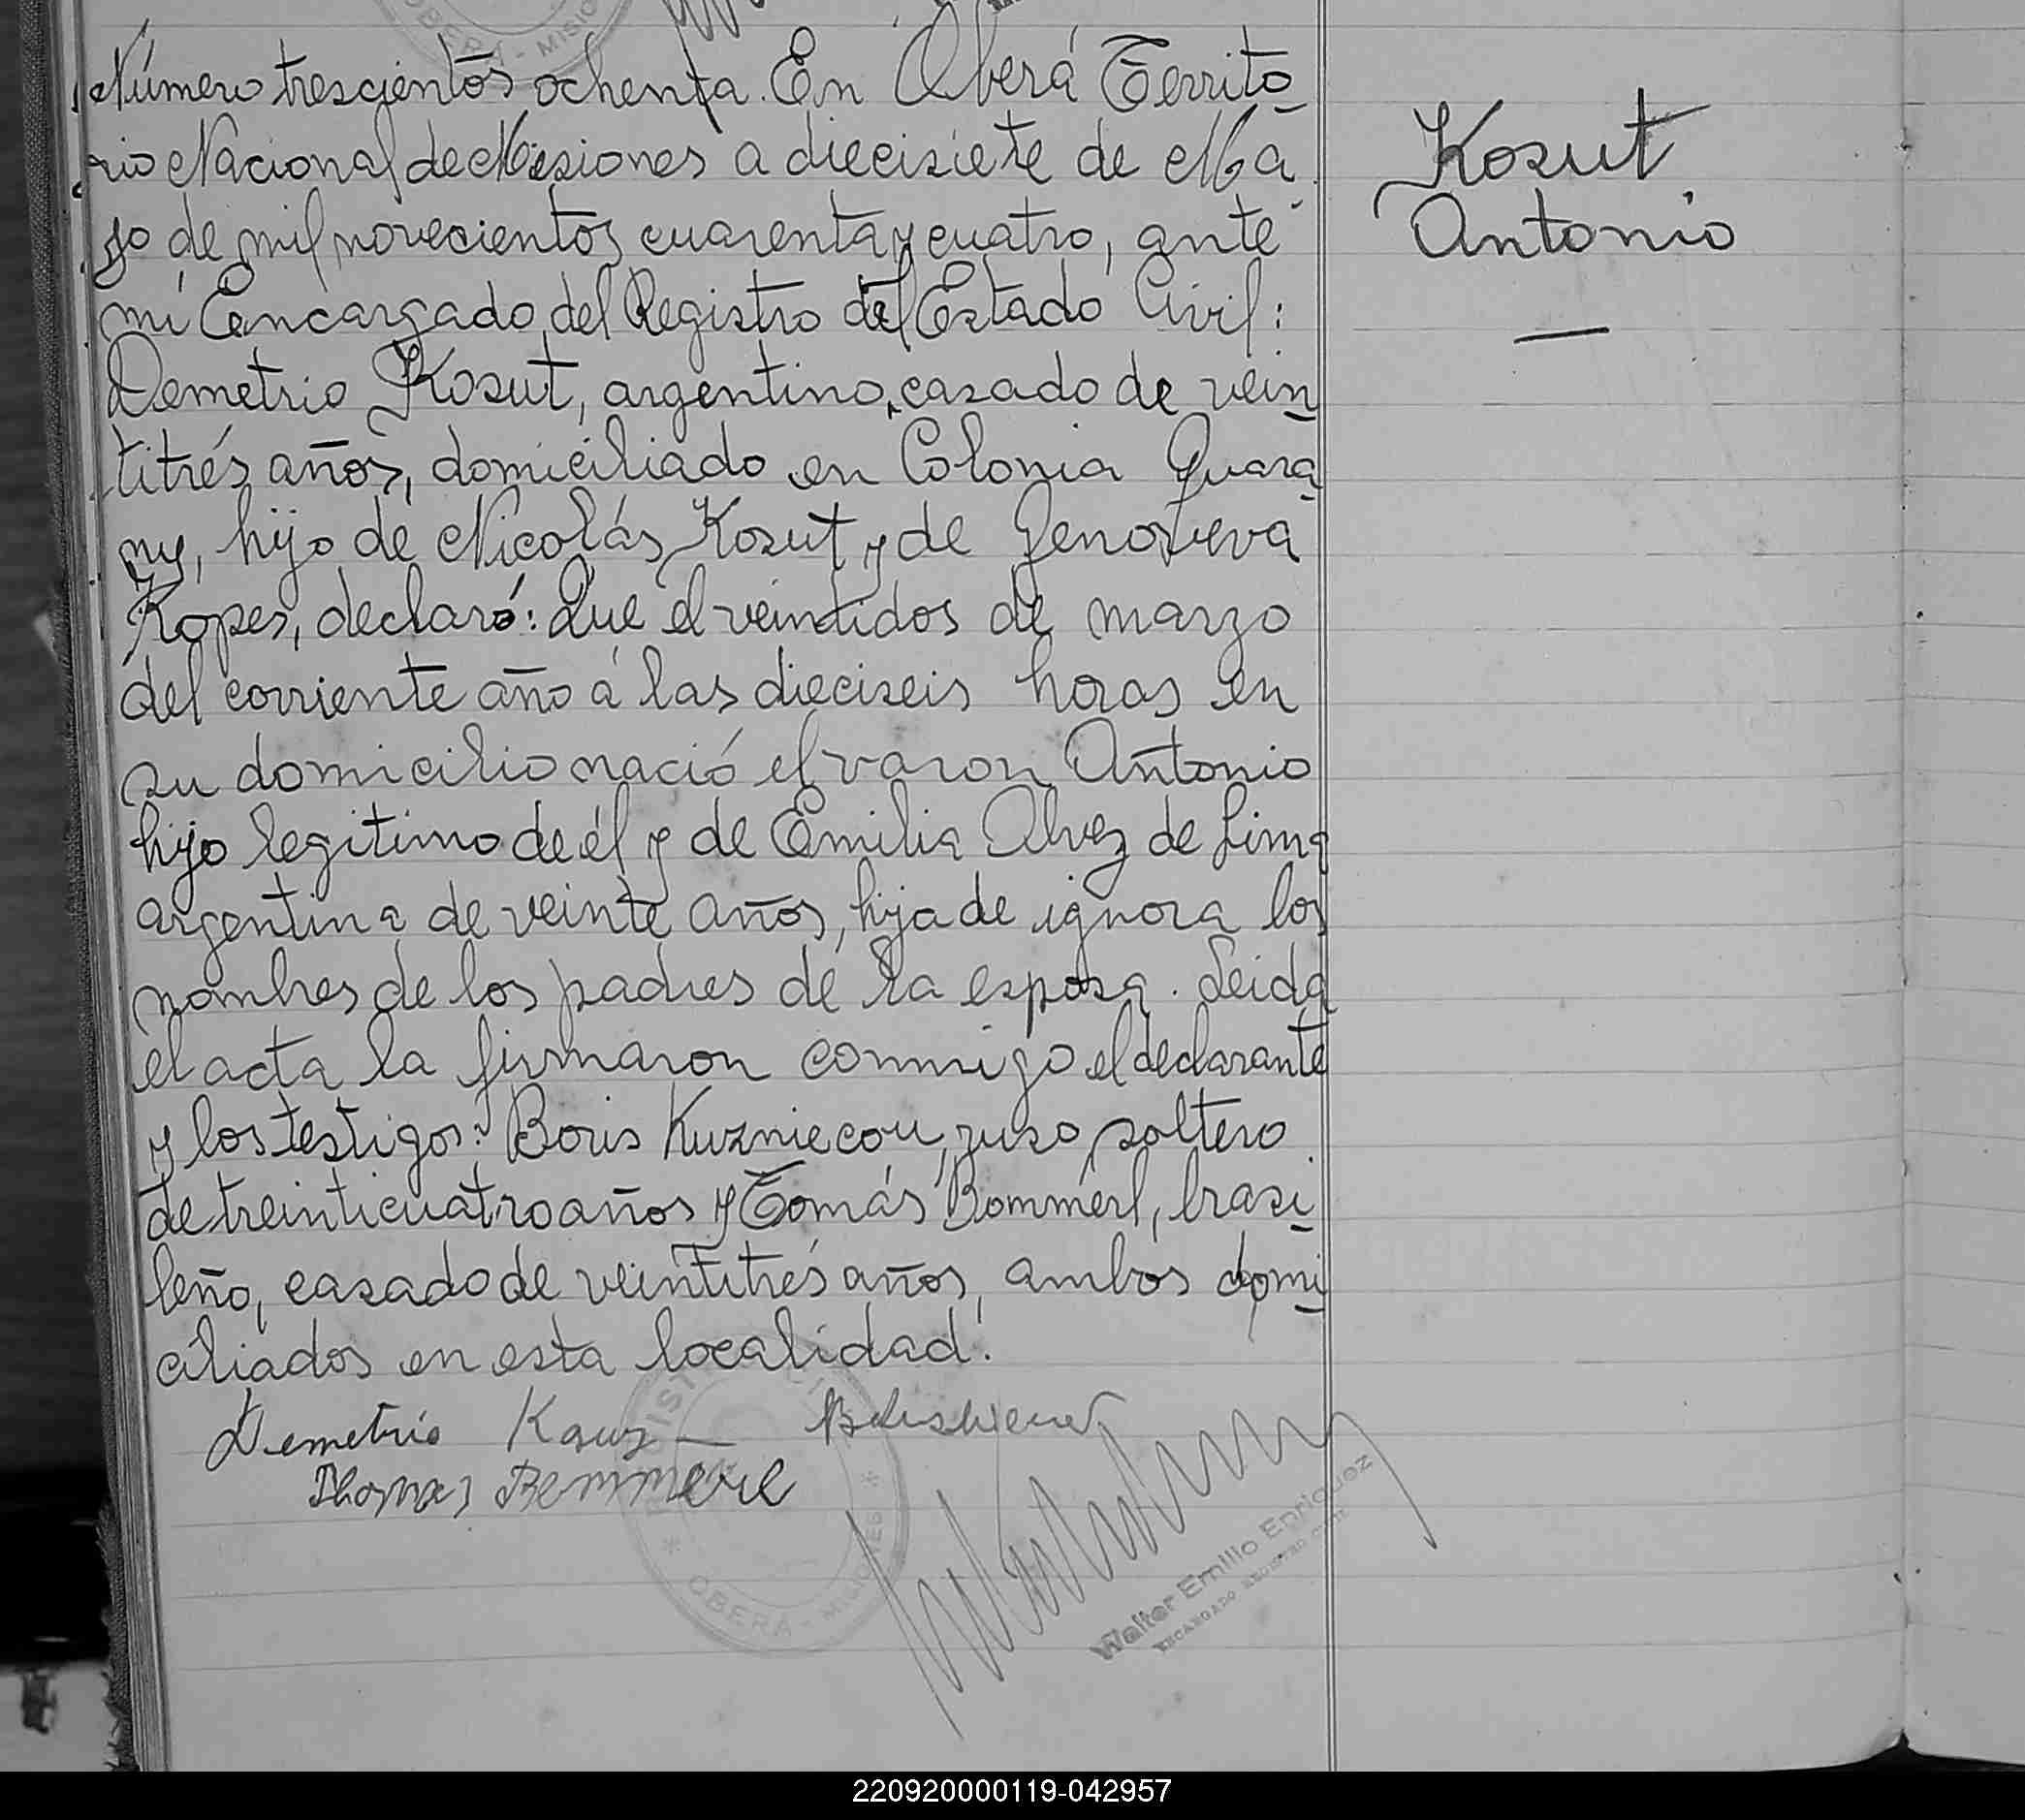 OBERÁ - MISIO
Número trescientos ochenta. En Oberá Territo
rio Nacional de Misiones a diecisiete de Ma
yo de mil novecientos cuarenta y cuatro, ante
mí Encargado del Registro del Estado Civil:
Demetrio Kosut, argentino, casado de vein
titrés años, domiciliado en Colonia Guara
ny, hijo de Nicolás Kosut y de Genoveva
Kopes, declaró: Que el veintidos de marzo
del corriente año a las dieciseis horas en
su domicilio nació el varon Antonio
hijo legitimo de él y de Emilia Alvez de Lima
argentina de veinte años, hija de ignora los
nombres de los padres de la esposa. Leida
el acta la firmaron conmigo el declarante
y los testigos: Boris Kuzniecou, ruso soltero
de treinticuatro años y Tomás Bommerl, brasi
leño, casado de veintitrés años, ambos domi
ciliados en esta localidad.
Kosut
Antonio
Demetrio
Thomas
OBERÁ - MISIONES
Walter Emilio Enriquez
ENCARGADO REGISTRO CIVIL
220920000119-042957